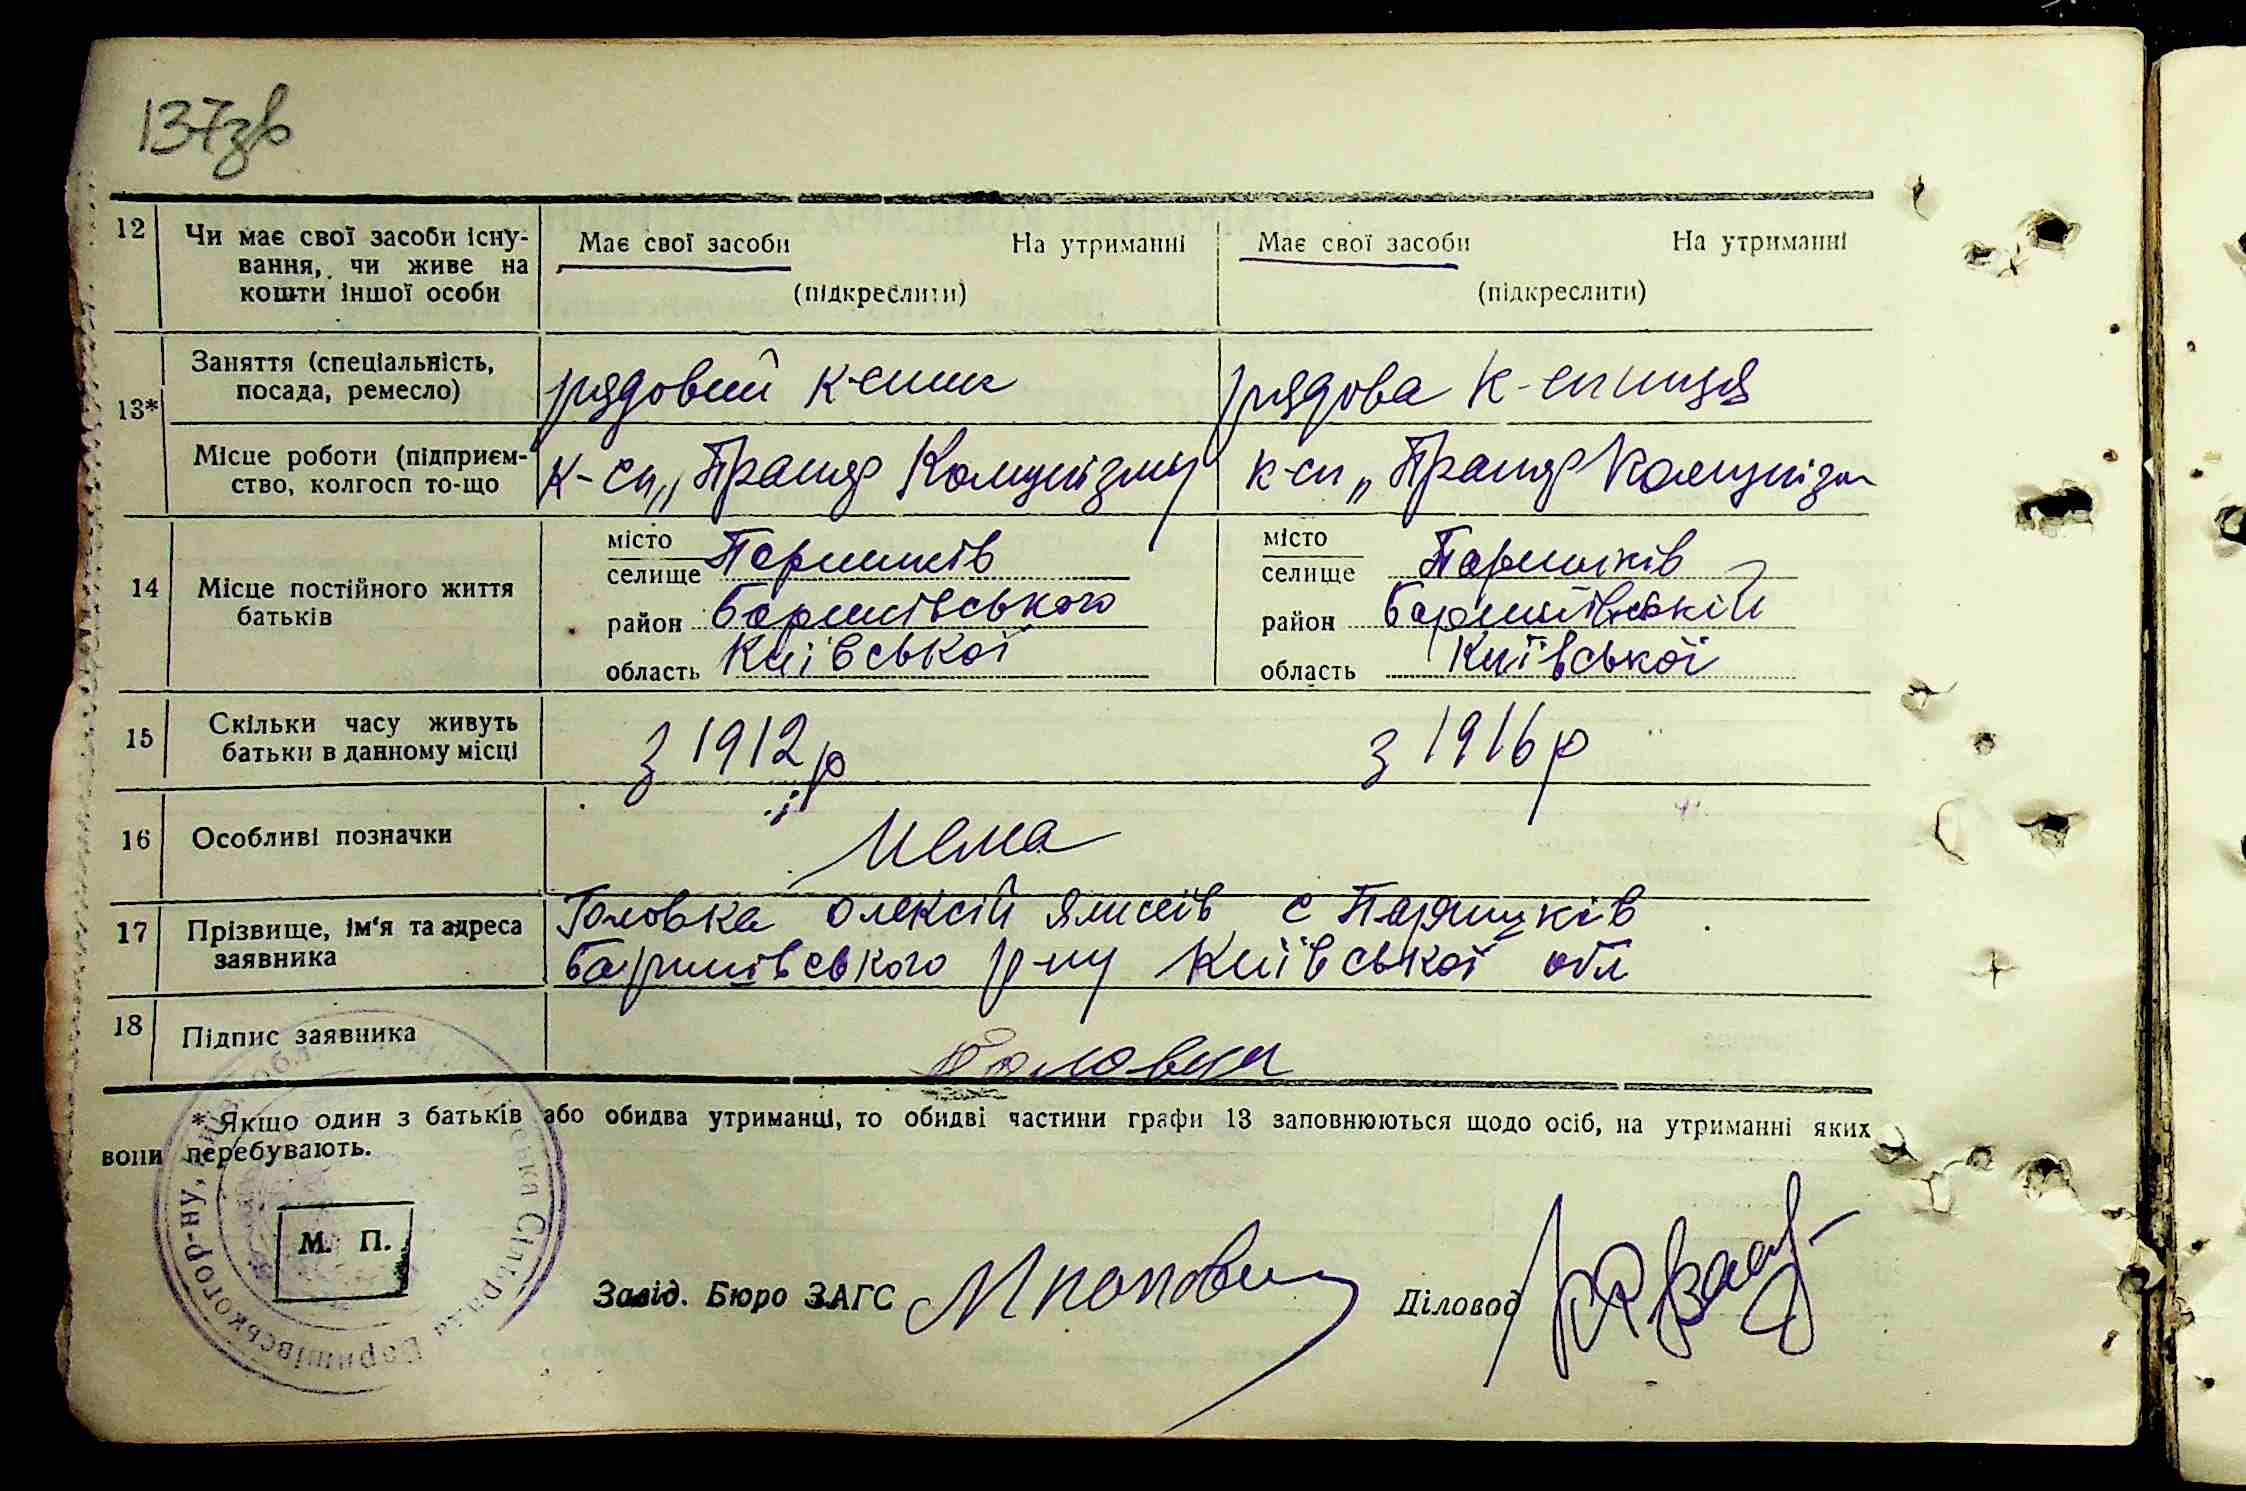 137зв
12
Чи має свої засоби існу-
вання, чи живе на
кошти іншої особи
Має свої засоби На утриманні
(підкреслити)
Має свої засоби На утриманні
(підкреслити)
13*
Заняття (спеціальність,
посада, ремесло)
рядовий к-сник
рядова к-спниця
Місце роботи (підприєм-
ство, колгосп то-що
к-сп „Прапор Комунізму
к-сп „Прапор Комунізм
14
Місце постійного життя
батьків
місто
селище Паришків
район Баришівського
область Київської
місто
селище Паришків
район Баришівській
область Київської
15
Скільки часу живуть
батьки в данному місці
з 1912 р
з 1916 р
16
Особливі позначки
Нема
17
Прізвище, ім'я та адреса
заявника
Головка Олексій с Паришків
Баришівського р-ну Київської обл
18
Підпис заявника
Головка
* Якщо один з батьків або обидва утриманці, то обидві частини графи 13 заповнюються щодо осіб, на утриманні яких
вони перебувають.
М. П.
Завід. Бюро ЗАГС
Діловод